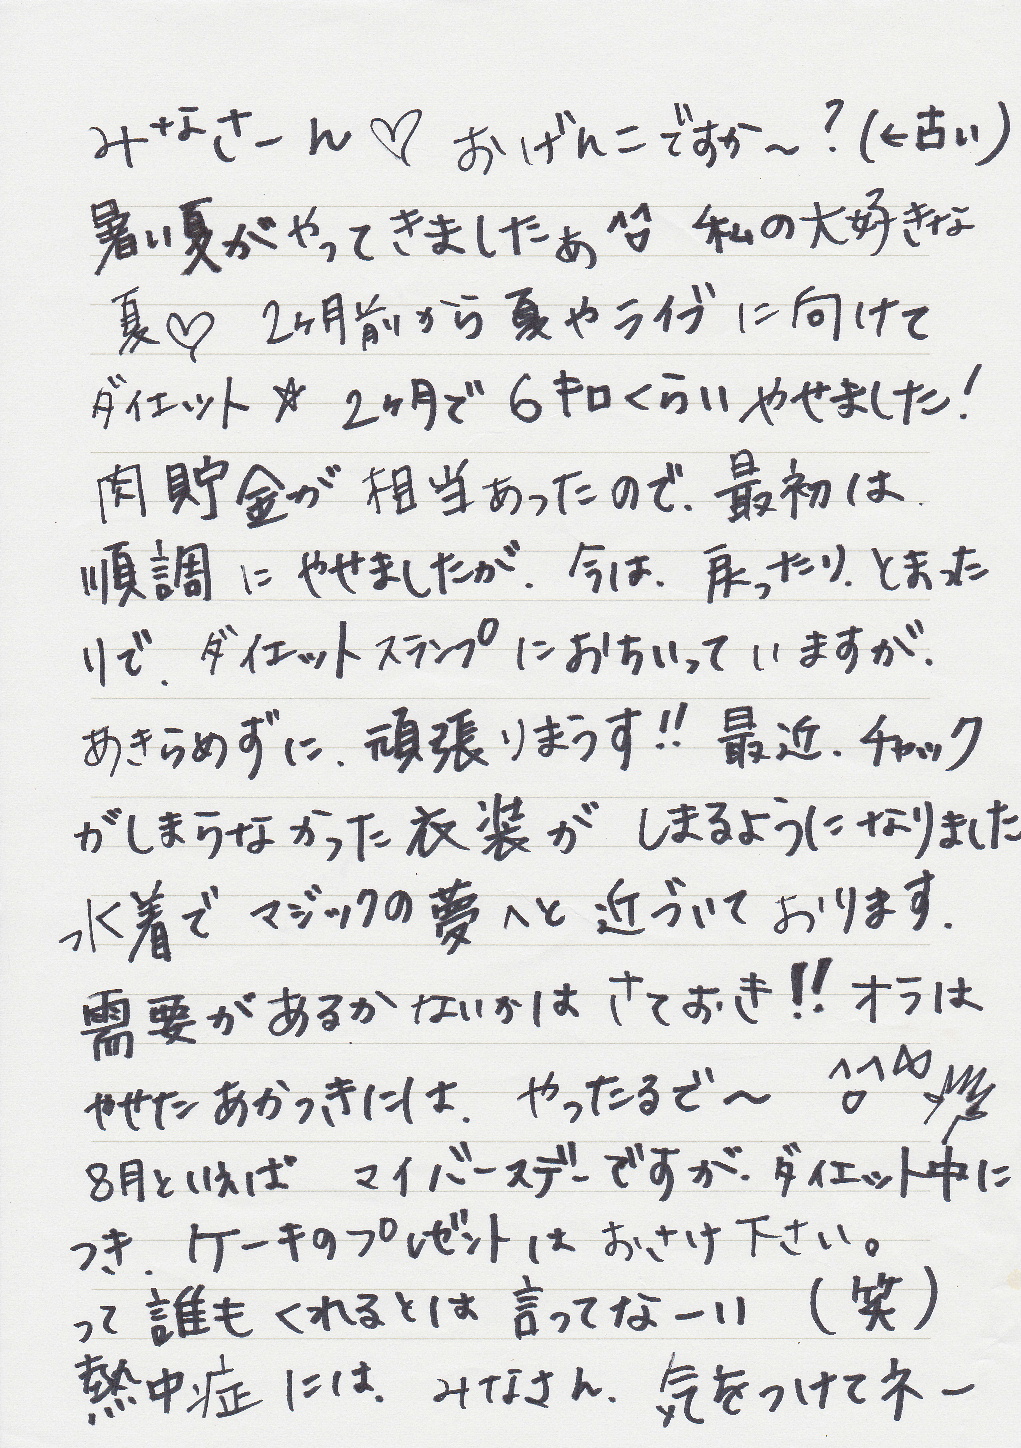 みなさーん♡ おげんこですか〜？(←古い)
暑い夏がやってきましたぁ^o^ 私の大好きな
夏♡ 2ヶ月前から夏やライブに向けて
ダイエット☆ 2ヶ月で6キロくらいやせました！
肉貯金が相当あったので、最初は、
順調にやせましたが、今は、戻ったり、とまった
りで、ダイエットスランプにおちいっていますが、
あきらめずに、頑張りまうす!! 最近、チャック
がしまらなかった衣装が しまるようになりました
水着でマジックの夢へと近づいております。
需要があるかないかはさておき!! オラは
やせたあかつきには、やったるで〜 ^o^
8月といえば マイバースデーですが、ダイエット中に
つき、ケーキのプレゼントはおさけ下さい。
って誰もくれるとは言ってなーい (笑)
熱中症には、みなさん、気をつけてネー